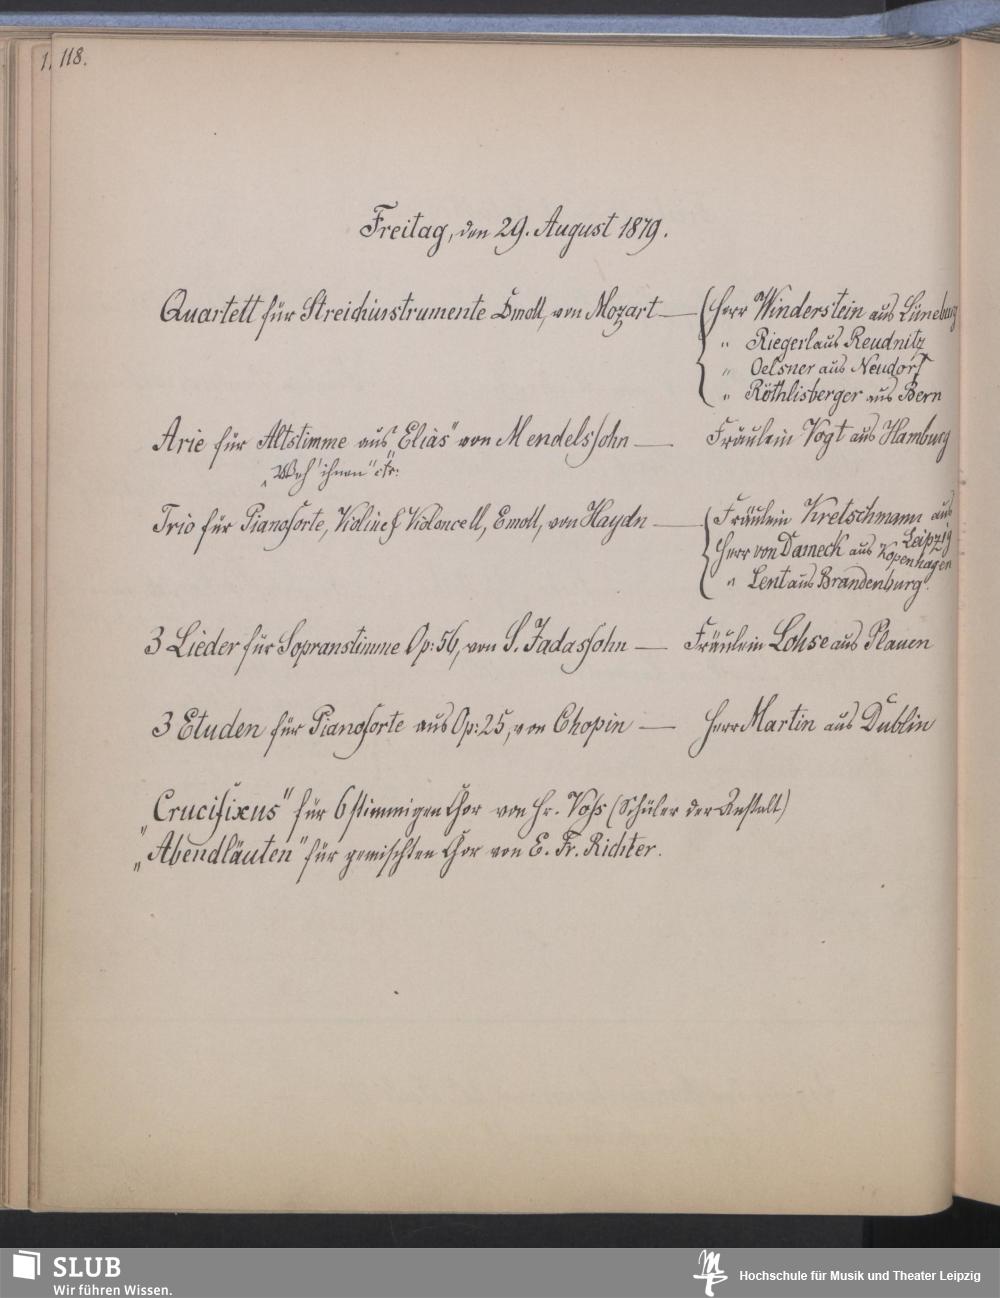 1. 118.
Freitag, den 29. August 1879.
Quartett für Streichinstrumente Dmoll, von Mozart — Herr Winderstein aus Lüneburg
" Riegerl aus Reudnitz
" Oelsner aus Neudorf
" Röthlisberger aus Bern
Arie für Altstimme aus „Elias" von Mendelssohn — Fräulein Vogt aus Hamburg
„Weh' ihnen" etc:
Trio für Pianoforte, Violine & Violoncell, Emoll, von Haydn — Fräulein Kretschmann aus Leipzig
Herr von Dameck aus Kopenhagen
" Lent aus Brandenburg.
3 Lieder für Sopranstimme Op: 56, von S. Jadassohn — Fräulein Lohse aus Plauen
3 Etuden für Pianoforte aus Op: 25, von Chopin — Herr Martin aus Dublin
„Crucifixus" für 6 stimmigen Chor von Hr. Voss (Schüler der Anstalt)
„Abendläuten" für gemischten Chor von E. Fr. Richter.
SLUB
Wir führen Wissen.
Hochschule für Musik und Theater Leipzig